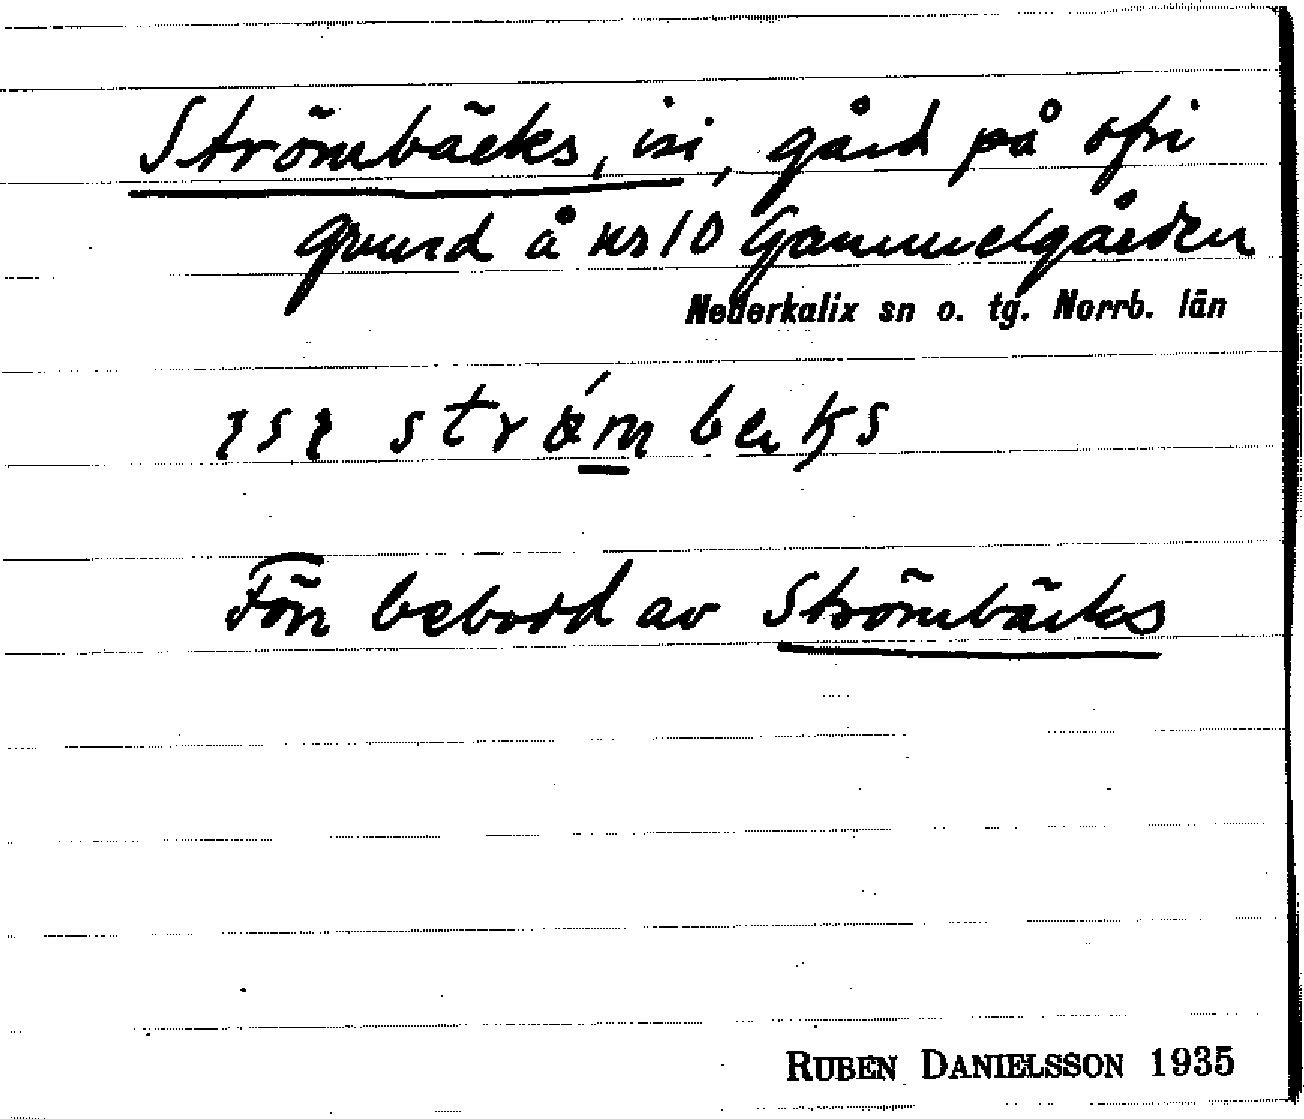 Strömbäcks, isi, gård på ofri
grund å nr 10 Gammelgården
Nederkalix sn o. tg. Norrb. län
ɿsɿ strǿm beks
Förr bebodd av Strömbäcks
RUBEN DANIELSSON 1935